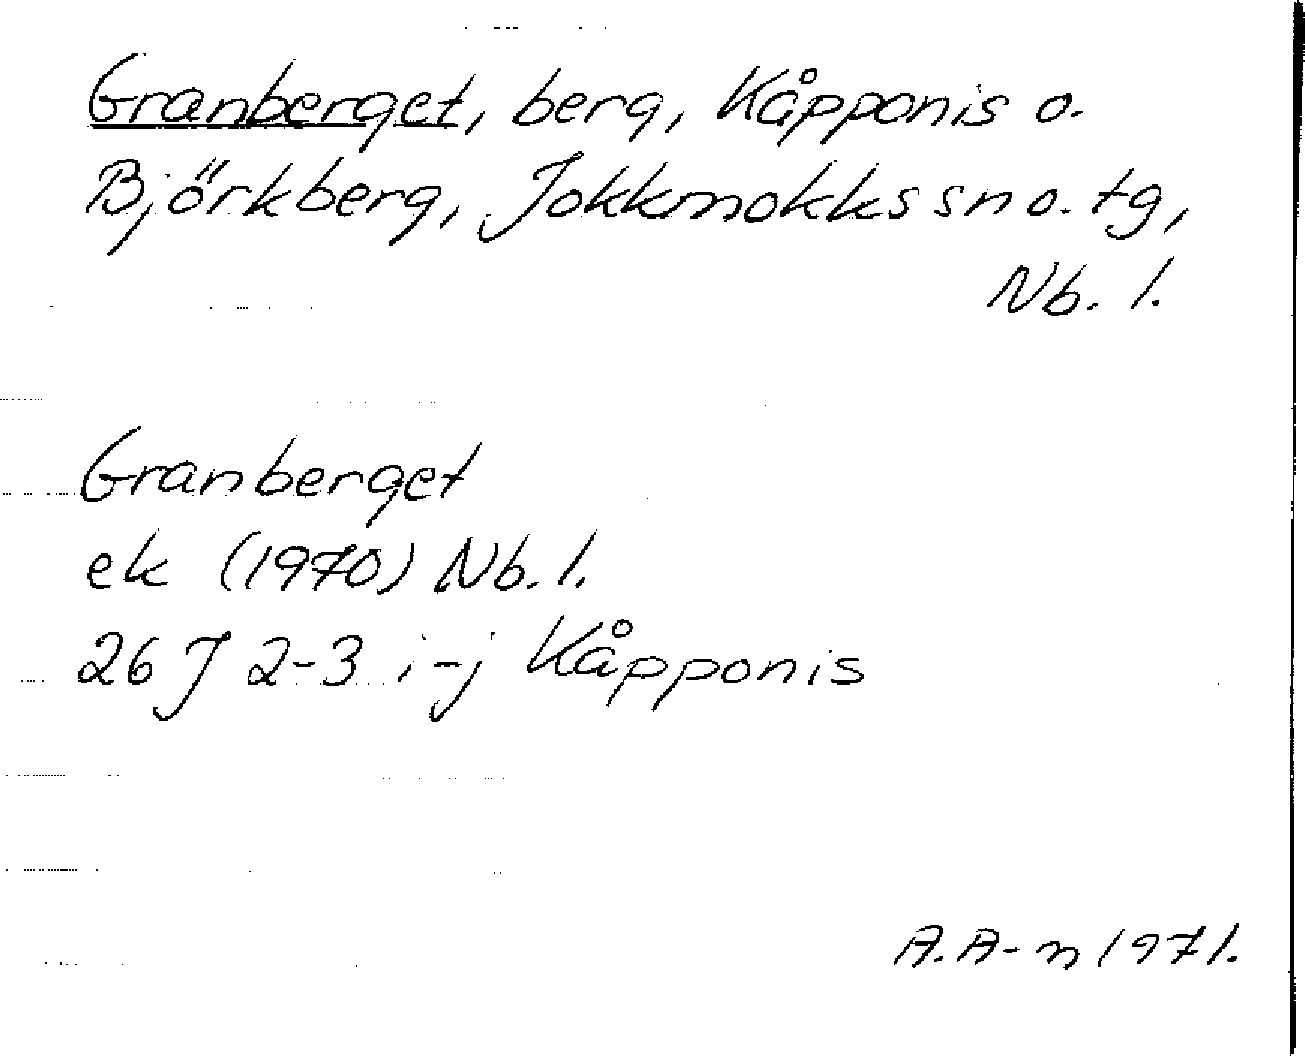 Granberget, berg, Kåpponis o.
Björkberg, Jokkmokks sn o. tg,
Nb. l.
Granberget
ek (1970) Nb. l.
26 J 2-3 i-j Kåpponis
A.A-n 1971.